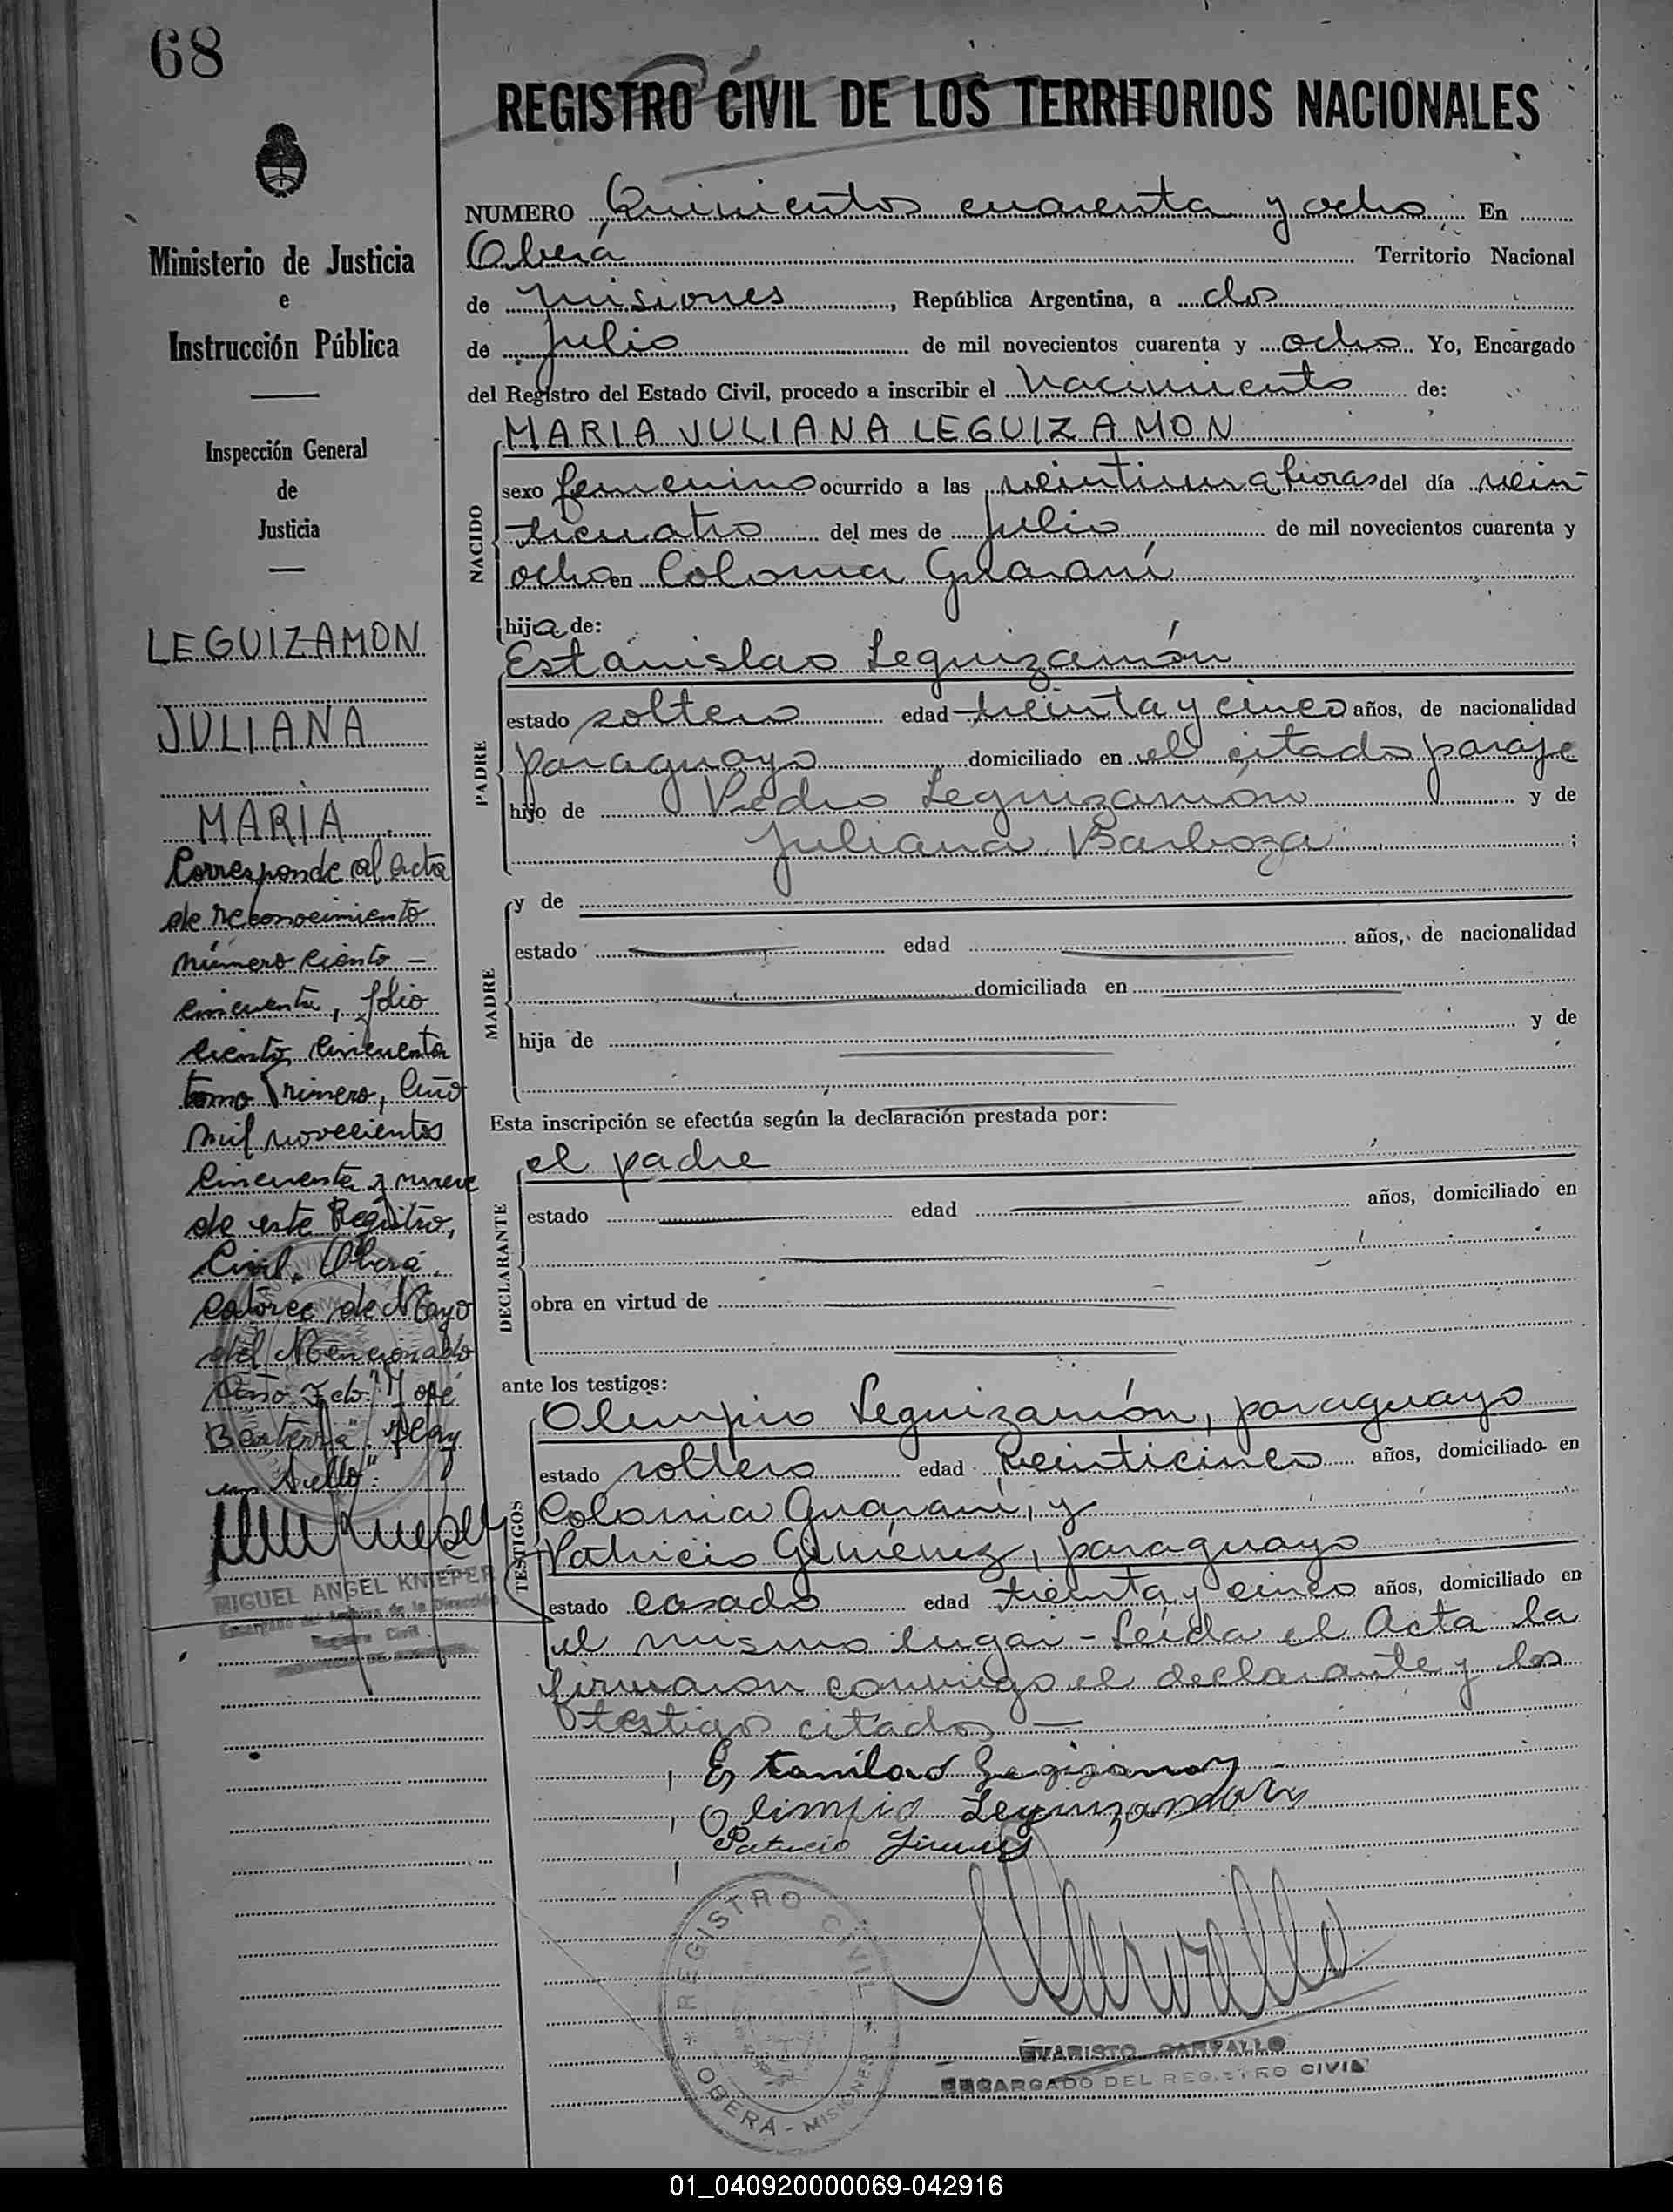 68
REGISTRO CIVIL DE LOS TERRITORIOS NACIONALES
Ministerio de Justicia
e
Instrucción Pública
Inspección General
de
Justicia
LEGUIZAMON
JULIANA
MARIA
Corresponde al acta
de reconocimiento
número ciento —
cincuenta, folio
ciento cincuenta
tomo Primero, Año
mil novecientos
cincuenta y nueve
de este Registro,
Civil. Oberá.
catorce de Mayo
del Mencionado
Año Fdo: José
hay
un Sello":
MIGUEL ANGEL KNIEPER
Encargado del Archivo de la Dirección
Registro Civil
NUMERO Quinientos cuarenta y ocho En
Oberá Territorio Nacional
de Misiones, República Argentina, a dos
de Julio de mil novecientos cuarenta y ocho Yo, Encargado
del Registro del Estado Civil, procedo a inscribir el Nacimiento de:
MARIA JULIANA LEGUIZAMON
NACIDO
sexo femenino ocurrido a las veintiuna horas del día vein-
ticuatro del mes de Julio de mil novecientos cuarenta y
ocho en Colonia Guaraní
hija de:
PADRE
Estanislao Leguizamón
estado soltero edad treinta y cinco años, de nacionalidad
paraguayo domiciliado en el citado paraje
hijo de Pedro Leguizamón y de
Juliana Barboza ;
MADRE
y de
estado edad años, de nacionalidad
domiciliada en
hija de y de
Esta inscripción se efectúa según la declaración prestada por:
DECLARANTE
el padre
estado edad años, domiciliado en
obra en virtud de
ante los testigos:
TESTIGOS
Olimpio Leguizamón, paraguayo
estado soltero edad veinticinco años, domiciliado en
Colonia Guaraní, y
Patricio Giménez, paraguayo
estado casado edad treinta y cinco años, domiciliado en
el mismo lugar - Leída el Acta la
firmaron conmigo el declarante y los
testigos citados —
Olimpio Leguizamon
Patricio
REGISTRO CIVIL
* OBERA - MISIONES *
EVARISTO CARVALLO
ENCARGADO DEL REGISTRO CIVIL
01_040920000069-042916